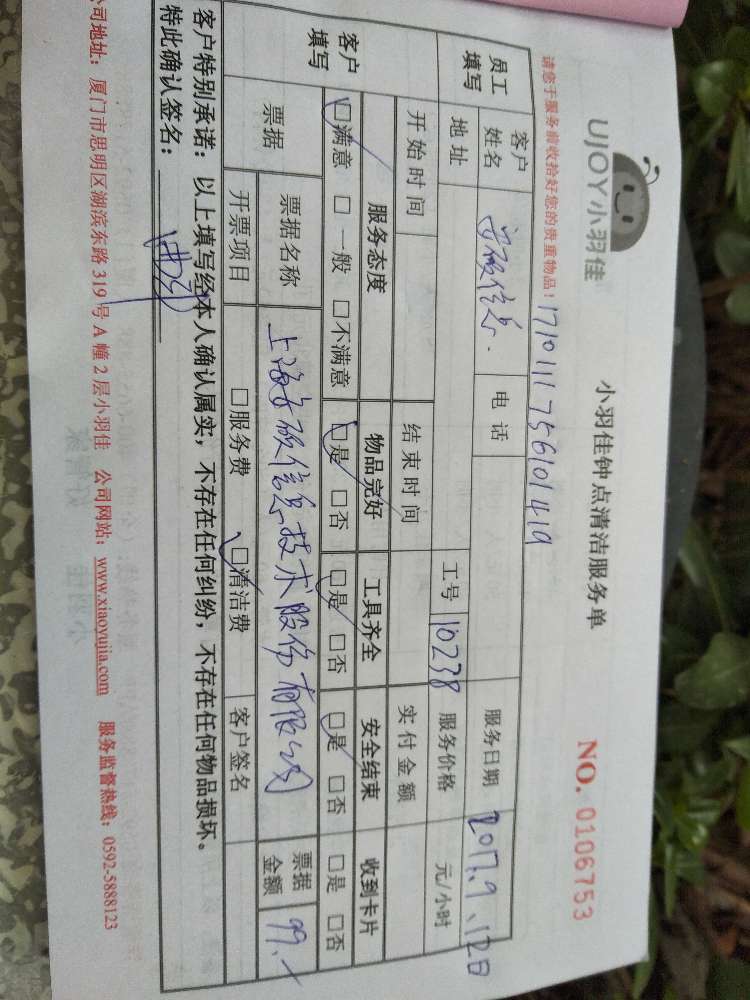 UJOY小羽佳
小羽佳钟点清洁服务单
NO. 0106753
请您于服务前收拾好您的贵重物品!
1710111756101419
员工填写
客户姓名
硕信息
电话
服务日期
2017.9.12日
地址
工号
10238
服务价格
元/小时
开始时间
结束时间
实付金额
客户填写
服务态度
物品完好
工具齐全
安全结束
收到卡片
□满意 □一般 □不满意
□是 □否
□是 □否
□是 □否
□是 □否
票据
票据名称
上海 硕信息技术股份有限公司
票据金额
99.
开票项目
□服务费 □清洁费
客户签名
客户特别承诺:以上填写经本人确认属实,不存在任何纠纷,不存在任何物品损坏。
特此确认签名:
公司地址:厦门市思明区湖滨东路319号A幢2层小羽佳 公司网站:www.xiaoyujia.com 服务监督热线:0592-5888123